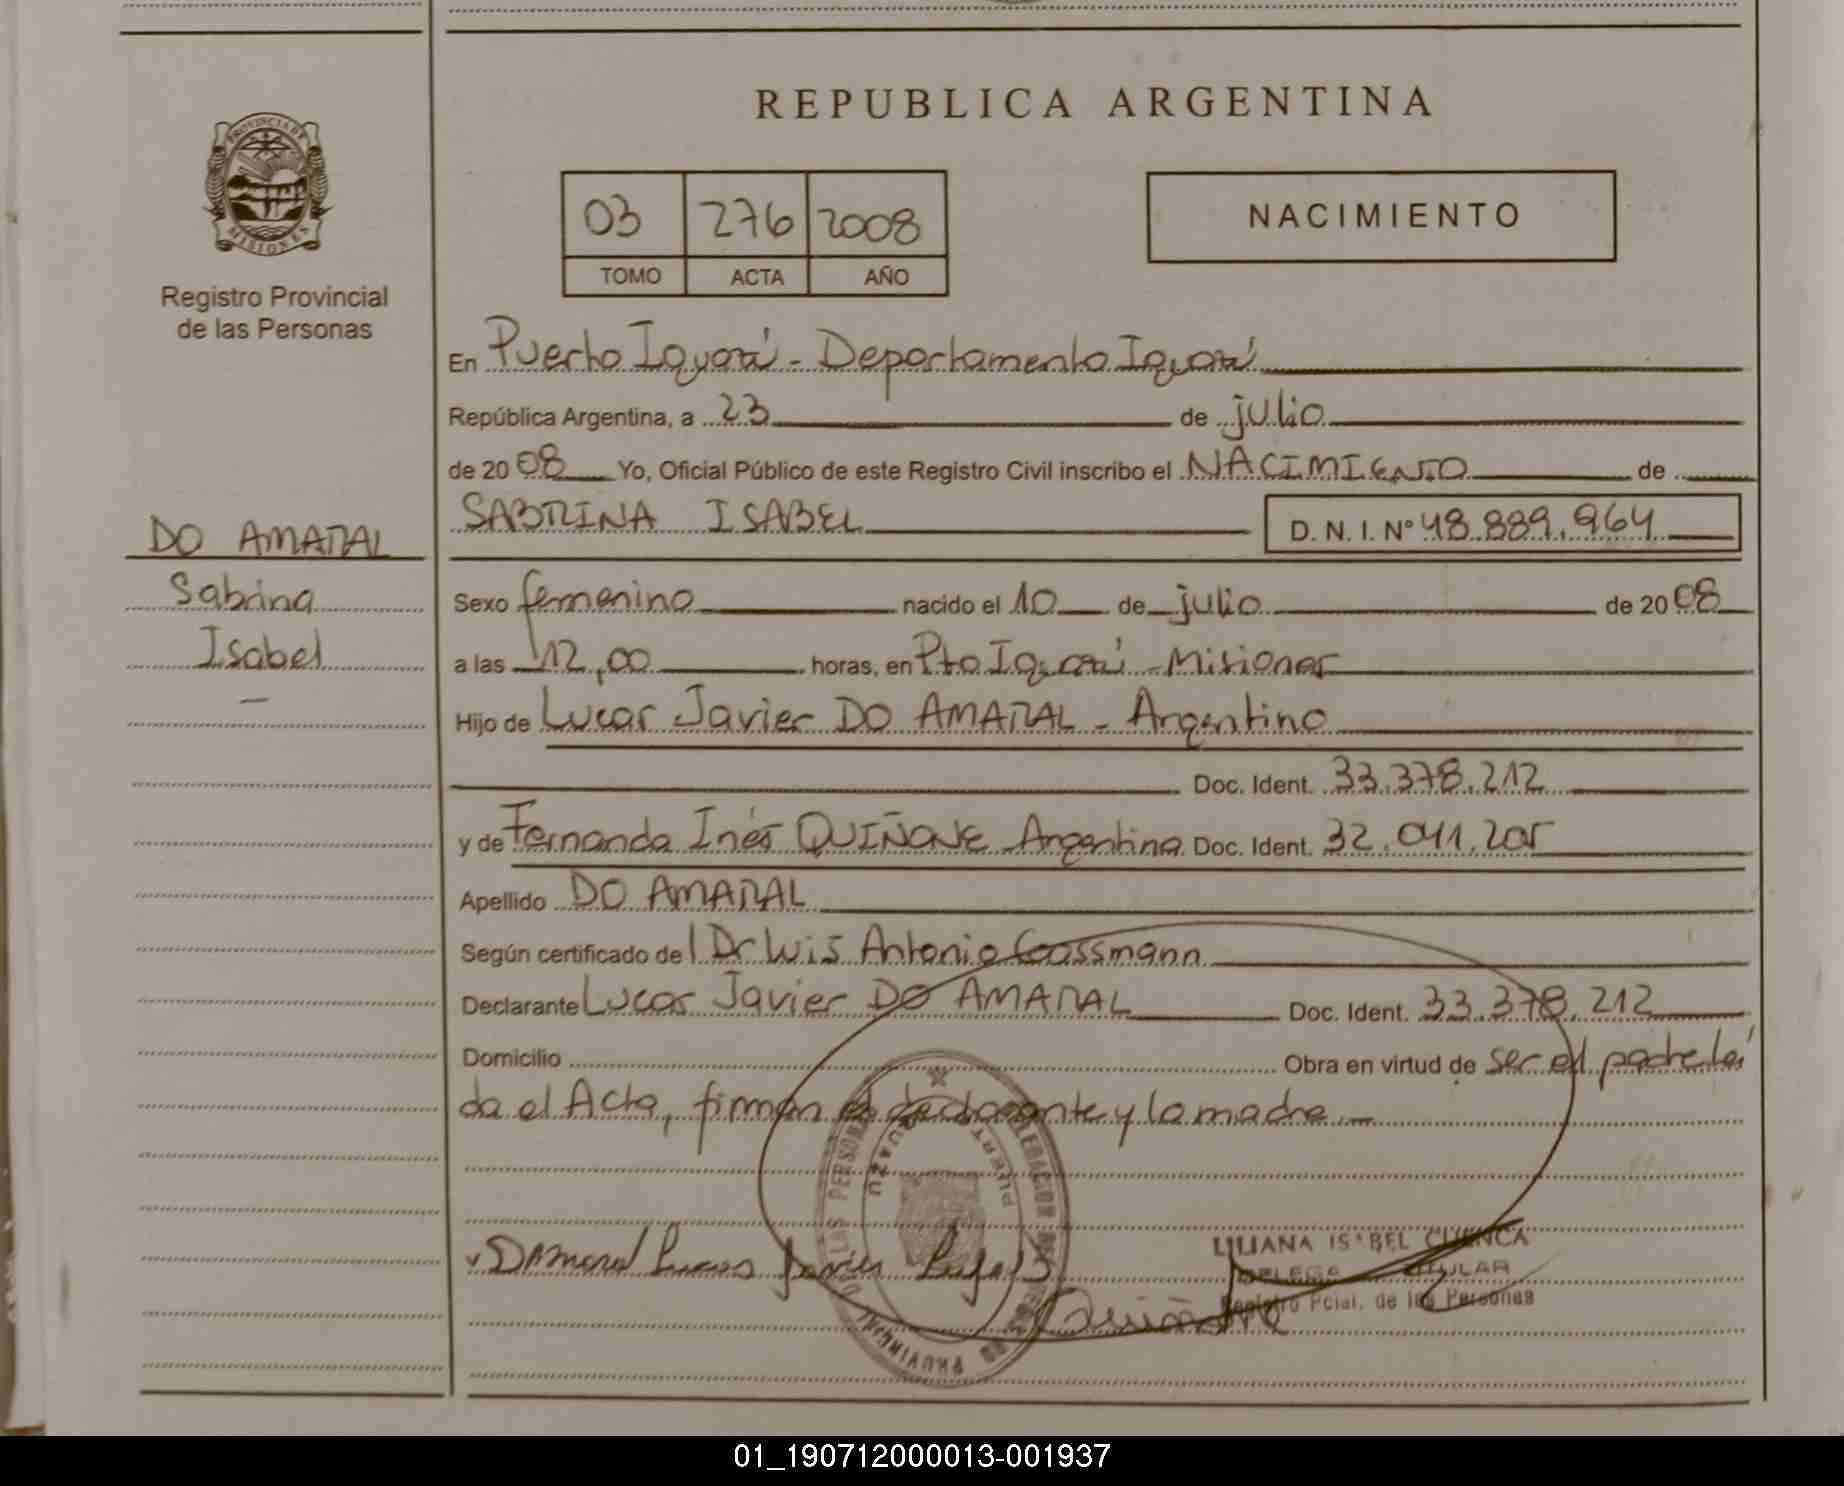 REPUBLICA ARGENTINA
PROVINCIA DE MISIONES
Registro Provincial
de las Personas
03 276 2008
TOMO ACTA AÑO
NACIMIENTO
En Puerto Iguazú - Departamento Iguazú
República Argentina, a 23 de julio
de 2008 Yo, Oficial Público de este Registro Civil inscribo el NACIMIENTO de
SABRINA ISABEL D. N. I. Nº 48.889.964
DO AMARAL
Sabrina
Isabel
Sexo femenino nacido el 10 de julio de 2008
a las 12,00 horas, en Pto Iguazú - Misiones
Hijo de Lucas Javier DO AMARAL - Argentino
Doc. Ident. 33.378.212
y de Fernanda Inés QUIÑONE - Argentina Doc. Ident. 32.041.205
Apellido DO AMARAL
Según certificado de Dr Luis Antonio
Declarante Lucas Javier DO AMARAL Doc. Ident. 33.378.212
Domicilio Obra en virtud de ser el padre leí
da el Acta, firman el declarante y la madre.-
DELEGACION
PUERTO IGUAZU
LAS PERSONAS
PROVINCIAL
LILIANA ISABEL CUENCA
TITULAR
Registro Pcial. de las Personas
01_190712000013-001937